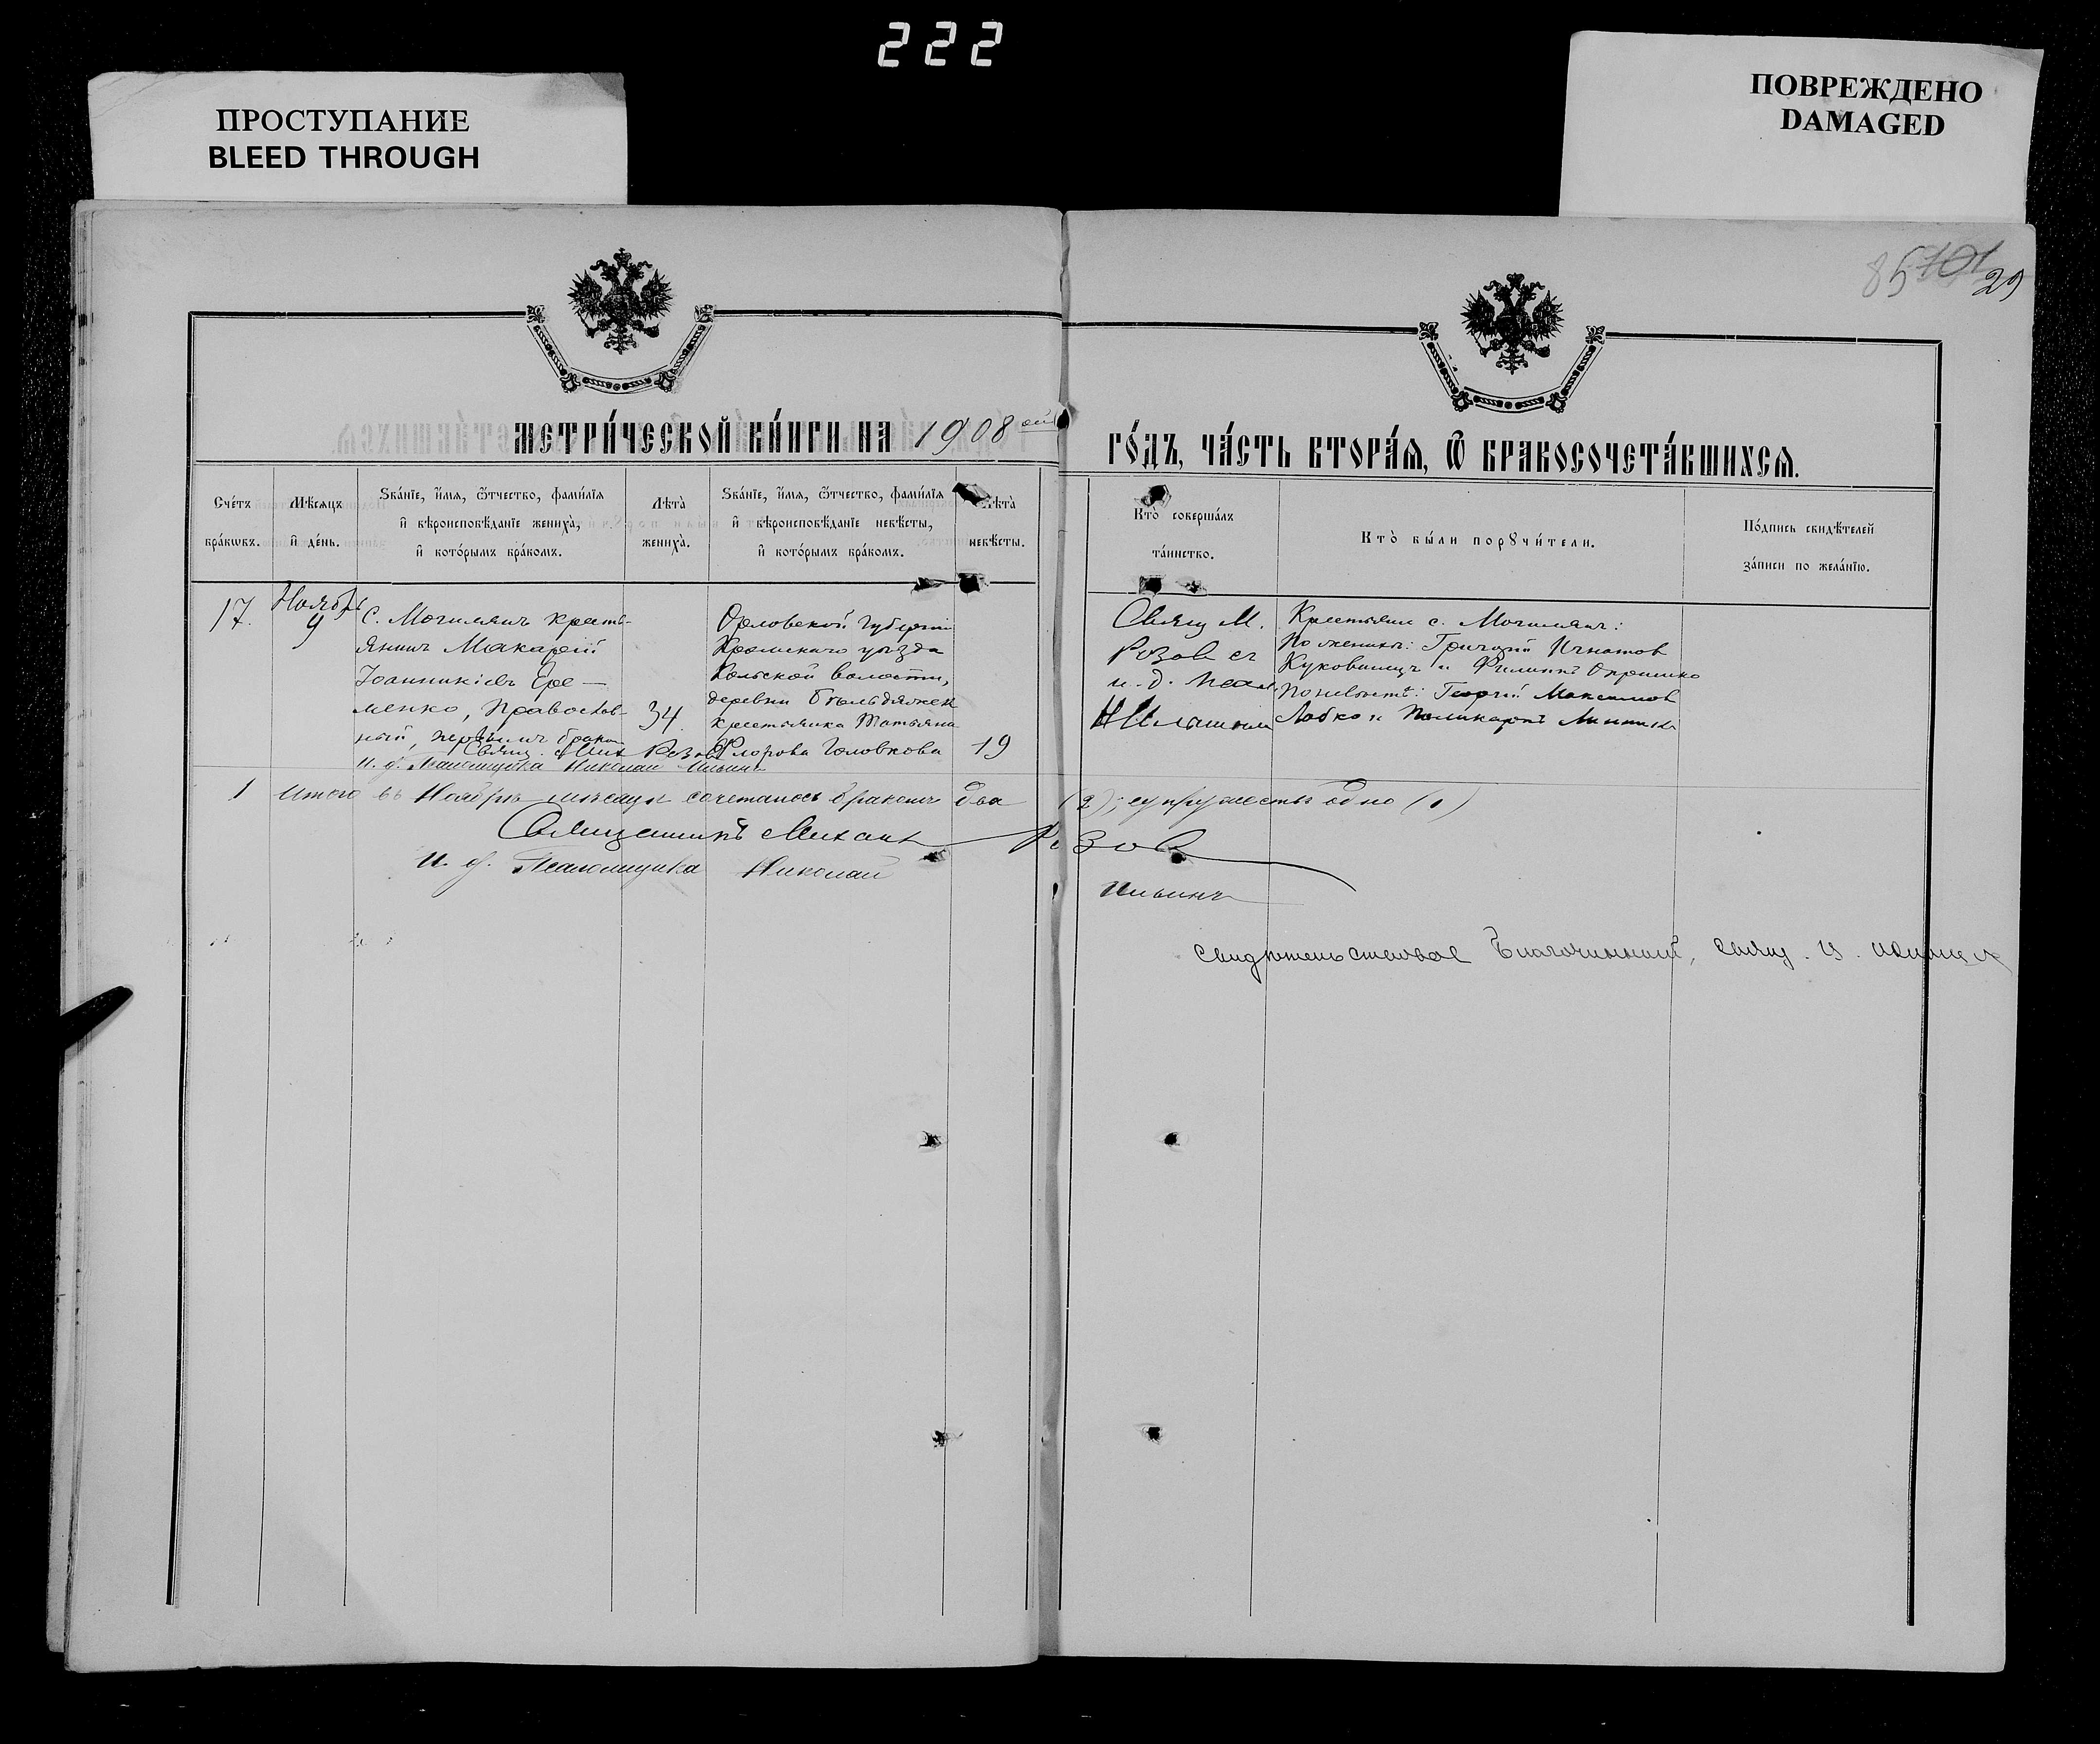 222
ПРОСТУПАНИЕ
BLEED THROUGH
ПОВРЕЖДЕНО
DAMAGED
85 101 29
МЕТРИ́ЧЕСКОЙ КНИ́ГИ НА 1908 ой
ГО́ДЪ, ЧА́СТЬ ВТОРА́Ѧ, Ѿ БРАКОСОЧЕТА́ВШИХСѦ.
Сче́тъ бра́кѡвъ.
Мѣ́сяцъ и҆ де́нь.
Ѕва́нїе, и҆́мѧ, ѻ҆́тчество, фами́лїѧ
и҆ вѣроисповѣ́данїе жениха̀,
и҆ кото́рымъ бра́комъ.
Лѣ́та жениха̀.
Ѕва́нїе, и҆́мѧ, ѻ҆́тчество, фами́лїѧ
и҆ вѣроисповѣ́данїе невѣ́сты,
и҆ кото́рымъ бра́комъ.
Лѣ́та невѣ́сты.
Кто̀ соверша́лъ та́инство.
Кто̀ бы́ли порꙋчи́тели.
По́дпись свидѣ́телей
за́писи по жела́нїю.
17.
Ноябрь
9
С. Могилянъ кресть-
янинъ Макарій
Іоанникіевъ Ере-
менко, православ-
ный, первымъ браком
34
Орловской губерніи
Кромскаго уѣзда
волости,
деревни
крестьянка Татьяна
Флорова Головкова
19
Свящ. Мих Розов
и. д. Псаломщика Николай Ильинъ
Свящ М.
Розов съ
и. д. псал.
Н Ильиным
Крестьяне с. Могилянъ:
По женихѣ: Григорій Игнатов
и Филиппъ
По невѣстѣ: Георгій Максимов
Лобко и Поликарпъ
1 Итого въ Ноябрѣ мѣсяцѣ сочеталось бракомъ два (2), супружество одно (1)
Священникъ Михаил Розов
И. д. Псаломщика Николай Ильинъ
Свидѣтельствовал Благочинный, свящ. И.